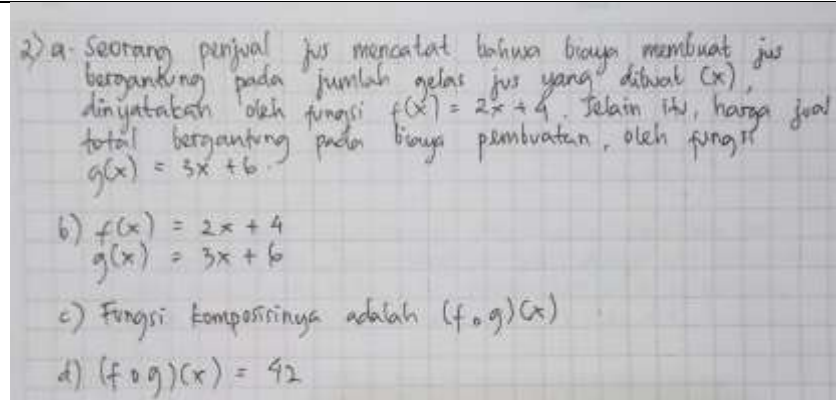 2) a. Seorang penjual jus mencatat bahwa biaya membuat jus
bergantung pada jumlah gelas jus yang dibuat (x),
dinyatakan oleh fungsi f(x) = 2x + 4. Selain itu, harga jual
total bergantung pada biaya pembuatan, oleh fungsi
g(x) = 3x + 6.
b) f(x) = 2x + 4
g(x) = 3x + 6
c) Fungsi komposisinya adalah (f ∘ g)(x)
d) (f ∘ g)(x) = 42